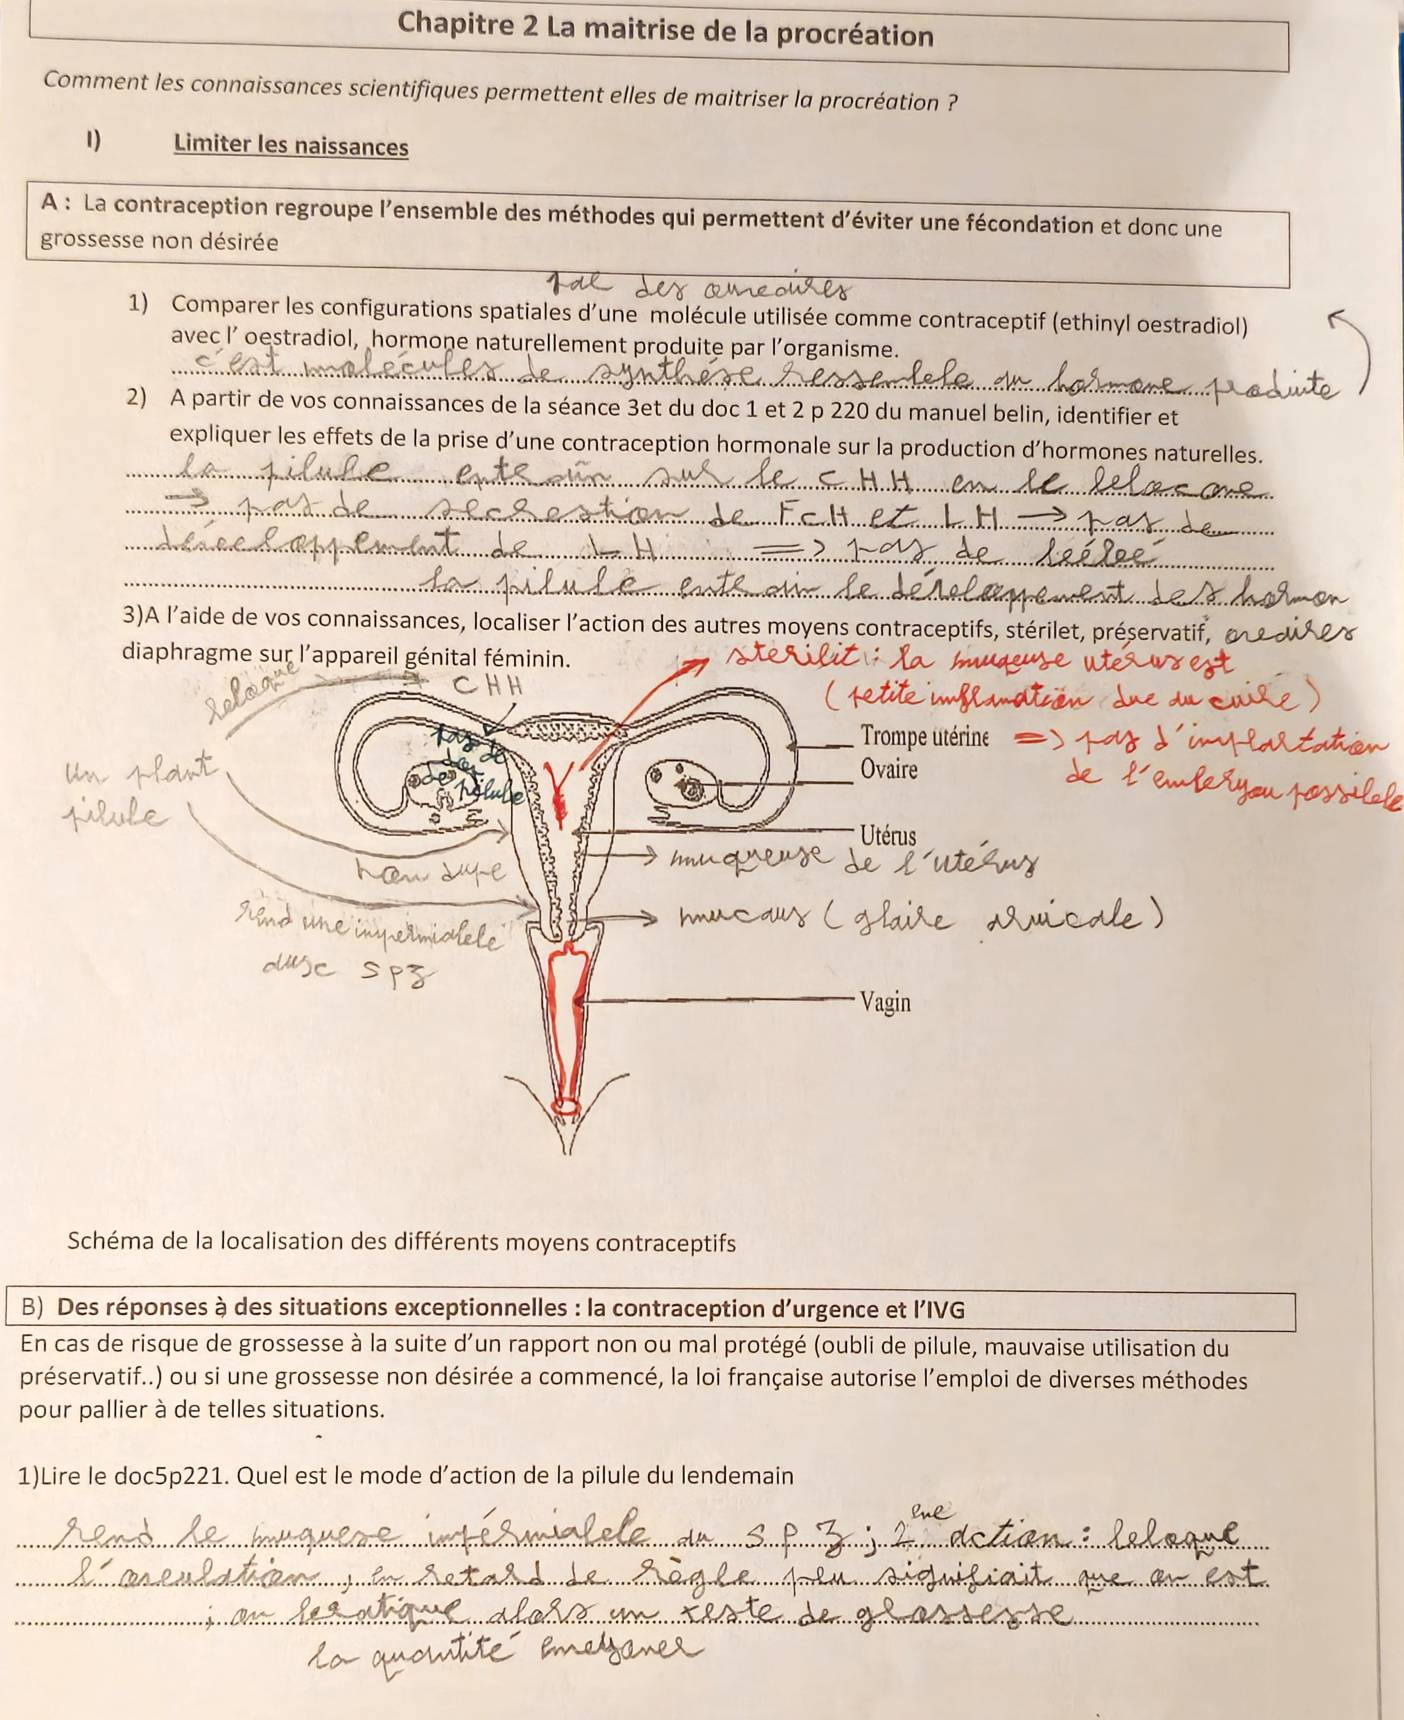 Chapitre 2 La maitrise de la procréation
Comment les connaissances scientifiques permettent elles de maitriser la procréation ?
I) Limiter les naissances
A : La contraception regroupe l'ensemble des méthodes qui permettent d'éviter une fécondation et donc une
grossesse non désirée
des
1) Comparer les configurations spatiales d'une molécule utilisée comme contraceptif (ethinyl oestradiol)
avec l' oestradiol, hormone naturellement produite par l'organisme.
c'est molécules de synthése ressemble au hormone produite
2) A partir de vos connaissances de la séance 3et du doc 1 et 2 p 220 du manuel belin, identifier et
expliquer les effets de la prise d'une contraception hormonale sur la production d'hormones naturelles.
la pilule sur le CHH en le
=> pas de de FcH et LH -> pas de
de LH => pas de
la pilule le des hormon
3)A l'aide de vos connaissances, localiser l'action des autres moyens contraceptifs, stérilet, préservatif,
diaphragme sur l'appareil génital féminin.
sterilit : la muqeuse uterus est
CHH
(petite imflamation due au cuire)
Trompe utérine => pas d'implartation
Ovaire
de l'embryou possible
pas de
de pilule
un plant
pilule
Utérus
muqreuse de l'utérus
rend une impermiable
mucaus (glaire
SPZ
Vagin
Schéma de la localisation des différents moyens contraceptifs
B) Des réponses à des situations exceptionnelles : la contraception d'urgence et l'IVG
En cas de risque de grossesse à la suite d'un rapport non ou mal protégé (oubli de pilule, mauvaise utilisation du
préservatif..) ou si une grossesse non désirée a commencé, la loi française autorise l'emploi de diverses méthodes
pour pallier à de telles situations.
1)Lire le doc5p221. Quel est le mode d'action de la pilule du lendemain
rend le muquese impérmiable au SPZ ; 2 eme action : bloque
retard de règle peu signifiait que on est
; on pratique alors un teste de
la quantité